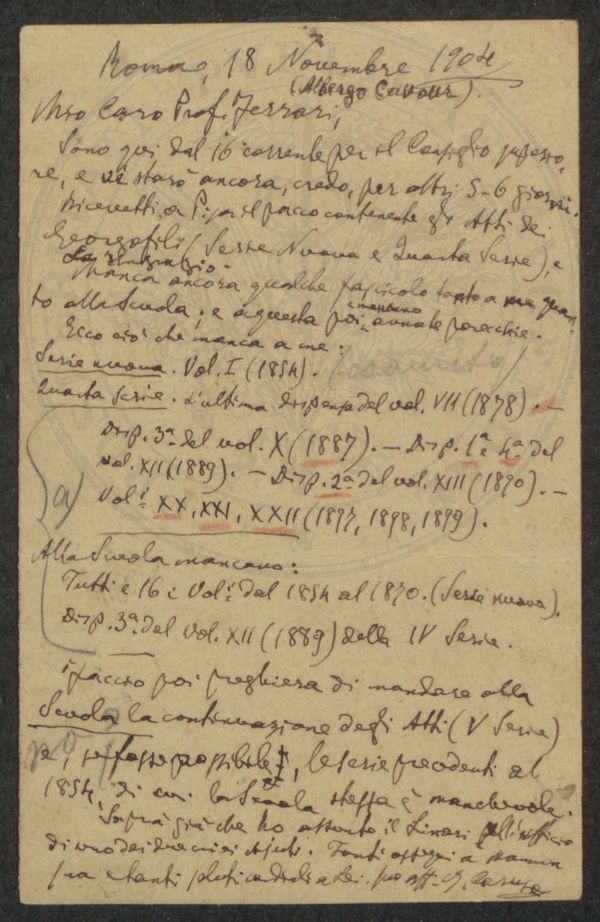 Roma, 18 Novembre 1904
(Albergo Cavour).
Mio Caro Prof. Ferrari,
Sono qui dal 16 corrente per il Consiglio superio-
re, e vi starò ancora, credo, per altri 5-6 giorni.
Ricevetti a Pisa il pacco contenente gli Atti dei
Georgofili (Serie Nuova e Quarta Serie), e
La ringrazio.
Manca ancora qualche fascicolo tanto a me quan-
to alla Scuola; e a questa poi mancano annate parecchie.
Ecco ciò che manca a me:
Serie nuova. Vol. I (1854). (esaurito)
Quarta serie. L'ultima dispensa del vol. VII (1878). —
Disp. 3ª del vol. X (1887). — Disp. 1ª e 4ª del
vol. XII (1889). — Disp. 2ª del vol. XIII (1890). —
Vol.i XX, XXI, XXII (1897, 1898, 1899).
a)
Alla Scuola mancano:
Tutti e 16 i Vol.i dal 1854 al 1870. (Serie nuova).
Disp. 3ª del vol. XII (1889) della IV Serie.
faccio poi preghiera di mandare alla
Scuola la continuazione degli Atti (V Serie)
e, se fosse possibile, le serie precedenti al
1854, di cui la Scuola stessa è manchevole.
Saprà già che ho assunto il Linari all'ufficio
di uno dei due miei Ajuti. Tanti ossequi a Mamma
sua e tanti saluti cordiali a Lei. Suo aff. G. Caruso